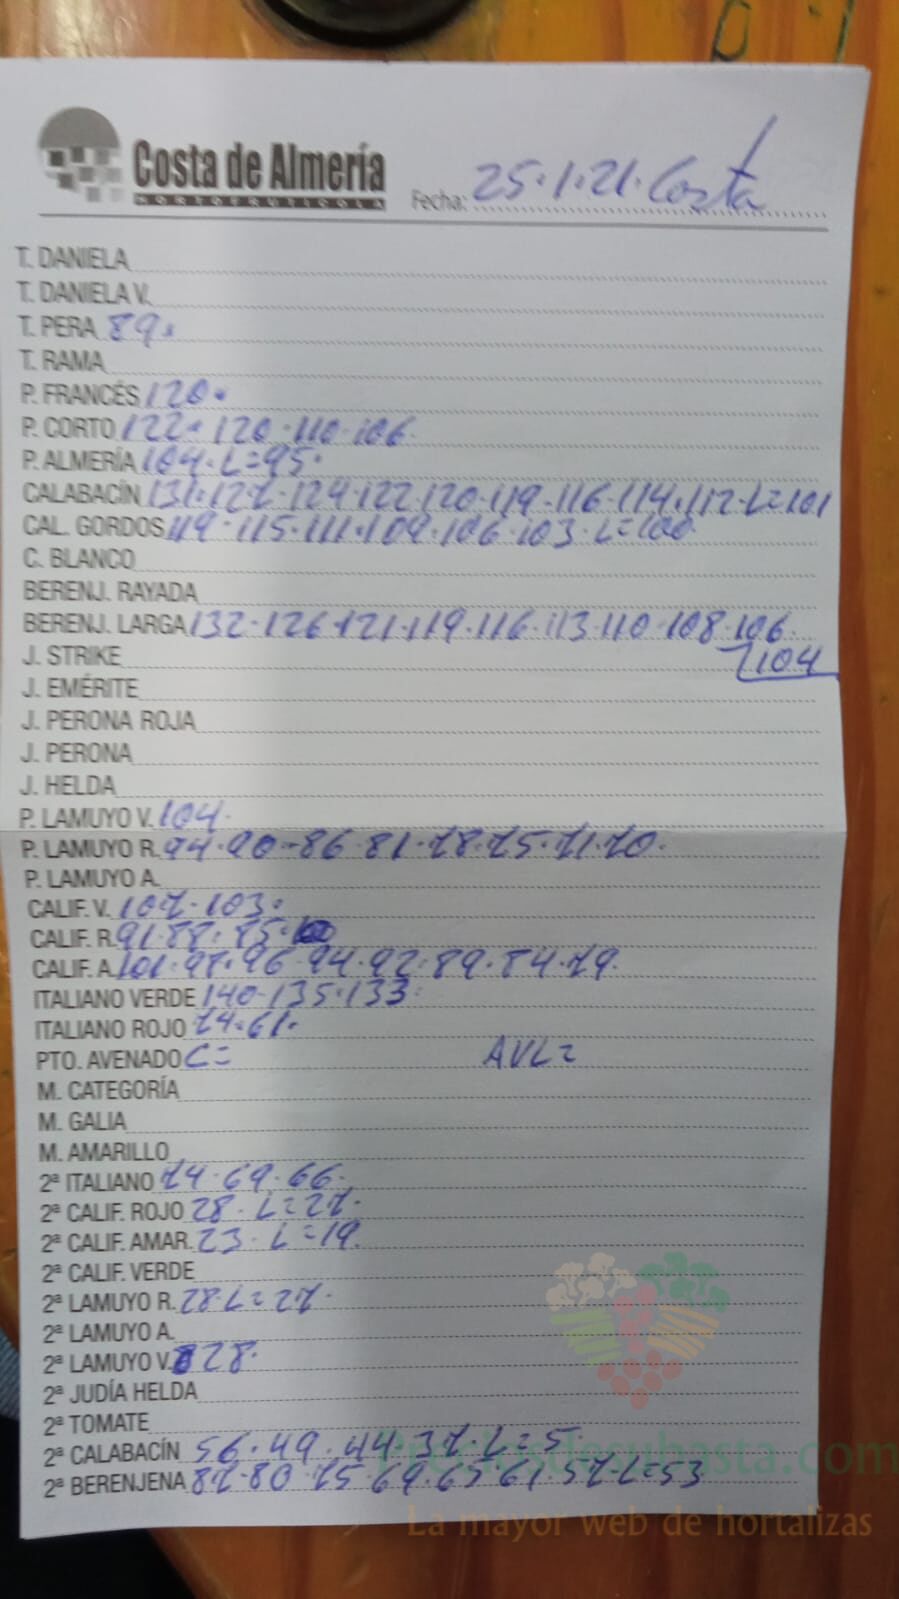 Costa de Almería
HORTOFRUTICOLA
Fecha: 25·1·21· Costa
T. DANIELA
T. DANIELA V.
T. PERA 89·
T. RAMA
P. FRANCÉS 120·
P. CORTO 122· 120·110·106
P. ALMERÍA 104·L=95·
CALABACÍN 131·127·124·122·120·119·116·114·112·L=101
CAL. GORDOS 119·115·111·109·106·103·L=100·
C. BLANCO
BERENJ. RAYADA
BERENJ. LARGA 132·126·121·119·116·113·110·108·106
J. STRIKE 104
J. EMÉRITE
J. PERONA ROJA
J. PERONA
J. HELDA
P. LAMUYO V. 104·
P. LAMUYO R. 94·90·86·81·78·75·71·70·
P. LAMUYO A.
CALIF. V. 107·103·
CALIF. R. 91·88·85·
CALIF. A. 101·98·96·94·92·89·84·79·
ITALIANO VERDE 140·135·133·
ITALIANO ROJO 74·61·
PTO. AVENADO C= AVL=
M. CATEGORÍA
M. GALIA
M. AMARILLO
2ª ITALIANO 74·69·66·
2ª CALIF. ROJO 28·L=27·
2ª CALIF. AMAR. 23·L=19·
2ª CALIF. VERDE
2ª LAMUYO R. 28·L=27·
2ª LAMUYO A.
2ª LAMUYO V. 28·
2ª JUDÍA HELDA
2ª TOMATE
2ª CALABACÍN 56·49·44·37·L=5·
2ª BERENJENA 87·80·75·69·65·61·57·L=53
Preciosdesubasta.com
La mayor web de hortalizas